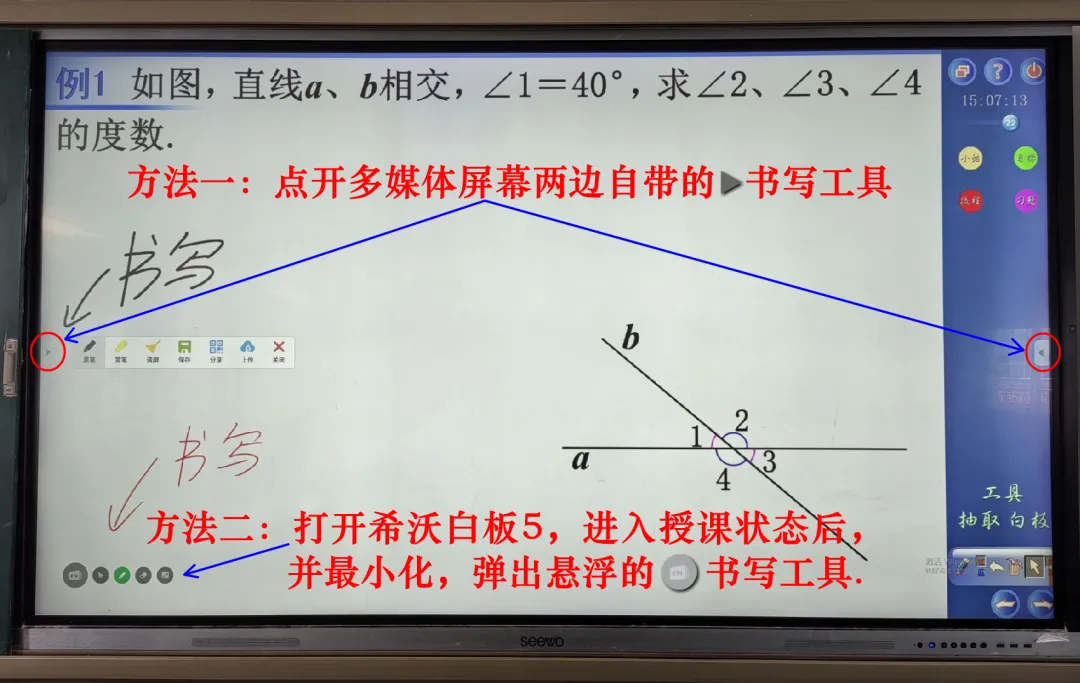 例1 如图,直线a、b相交,∠1=40°,求∠2、∠3、∠4
的度数.
15:07:13
22
方法一:点开多媒体屏幕两边自带的▶书写工具
书写
黑笔 荧笔 清屏 保存 分享 上传 关闭
b
2
1
a
3
4
书写
工具
抽取 白板
方法二:打开希沃白板5,进入授课状态后,
并最小化,弹出悬浮的 EN 书写工具.
seewo